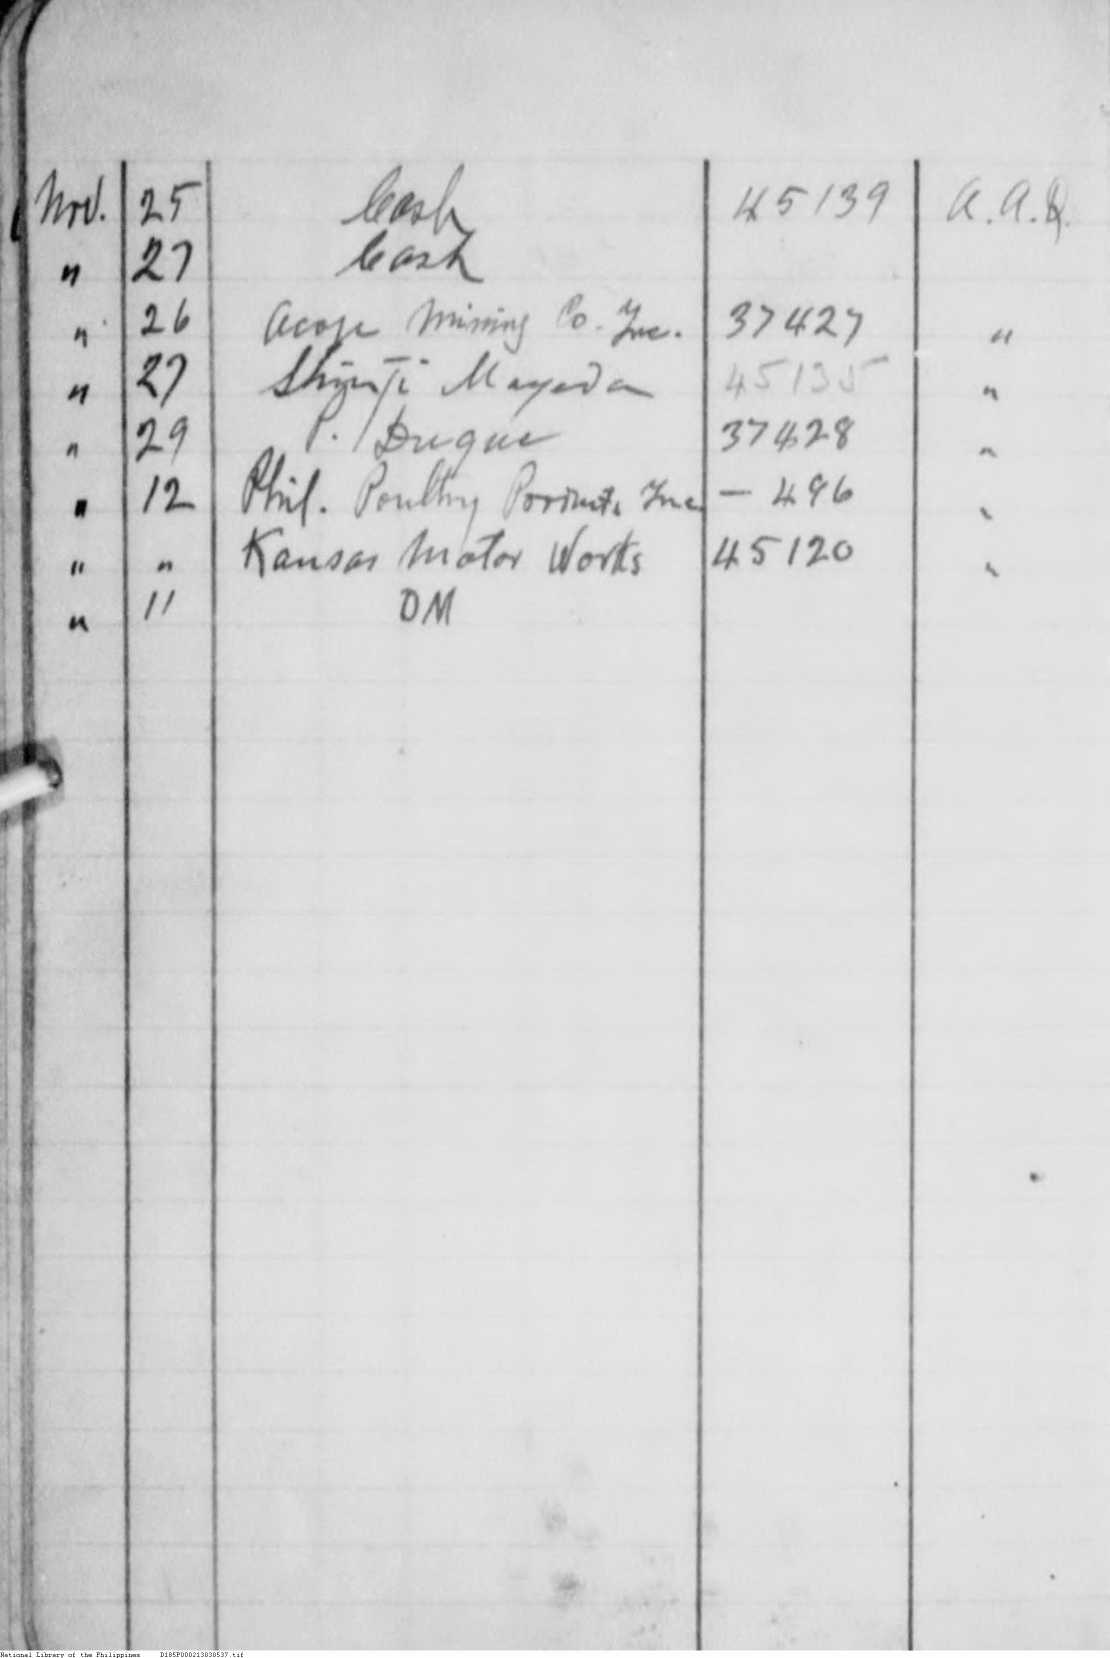 Nov. 25 Cash 45139 A.A.R.
" 27 Cash
" 26 Acoje Mining Co. Inc. 37427 "
" 27 Shinji Mayeda 45135 "
" 29 P. Duque 37428 "
" 12 Phil. Poultry Porduts Inc — 496 "
" " Kansas Motor Works 45120 "
" 11 DM
National Library of the Philippines D185P000213838537.tif